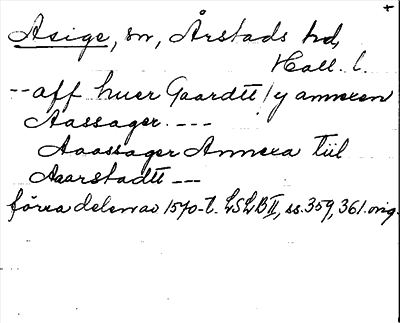 +
Asige, sn, Årstads hd,
Hall. l.
-- aff huer Gaardtt / y annexen
Aassager ---
Aaassager Annexa tiil
Aaarstadtt ---
förra delen av 1570-t. LSLB II, ss. 359, 361. orig.